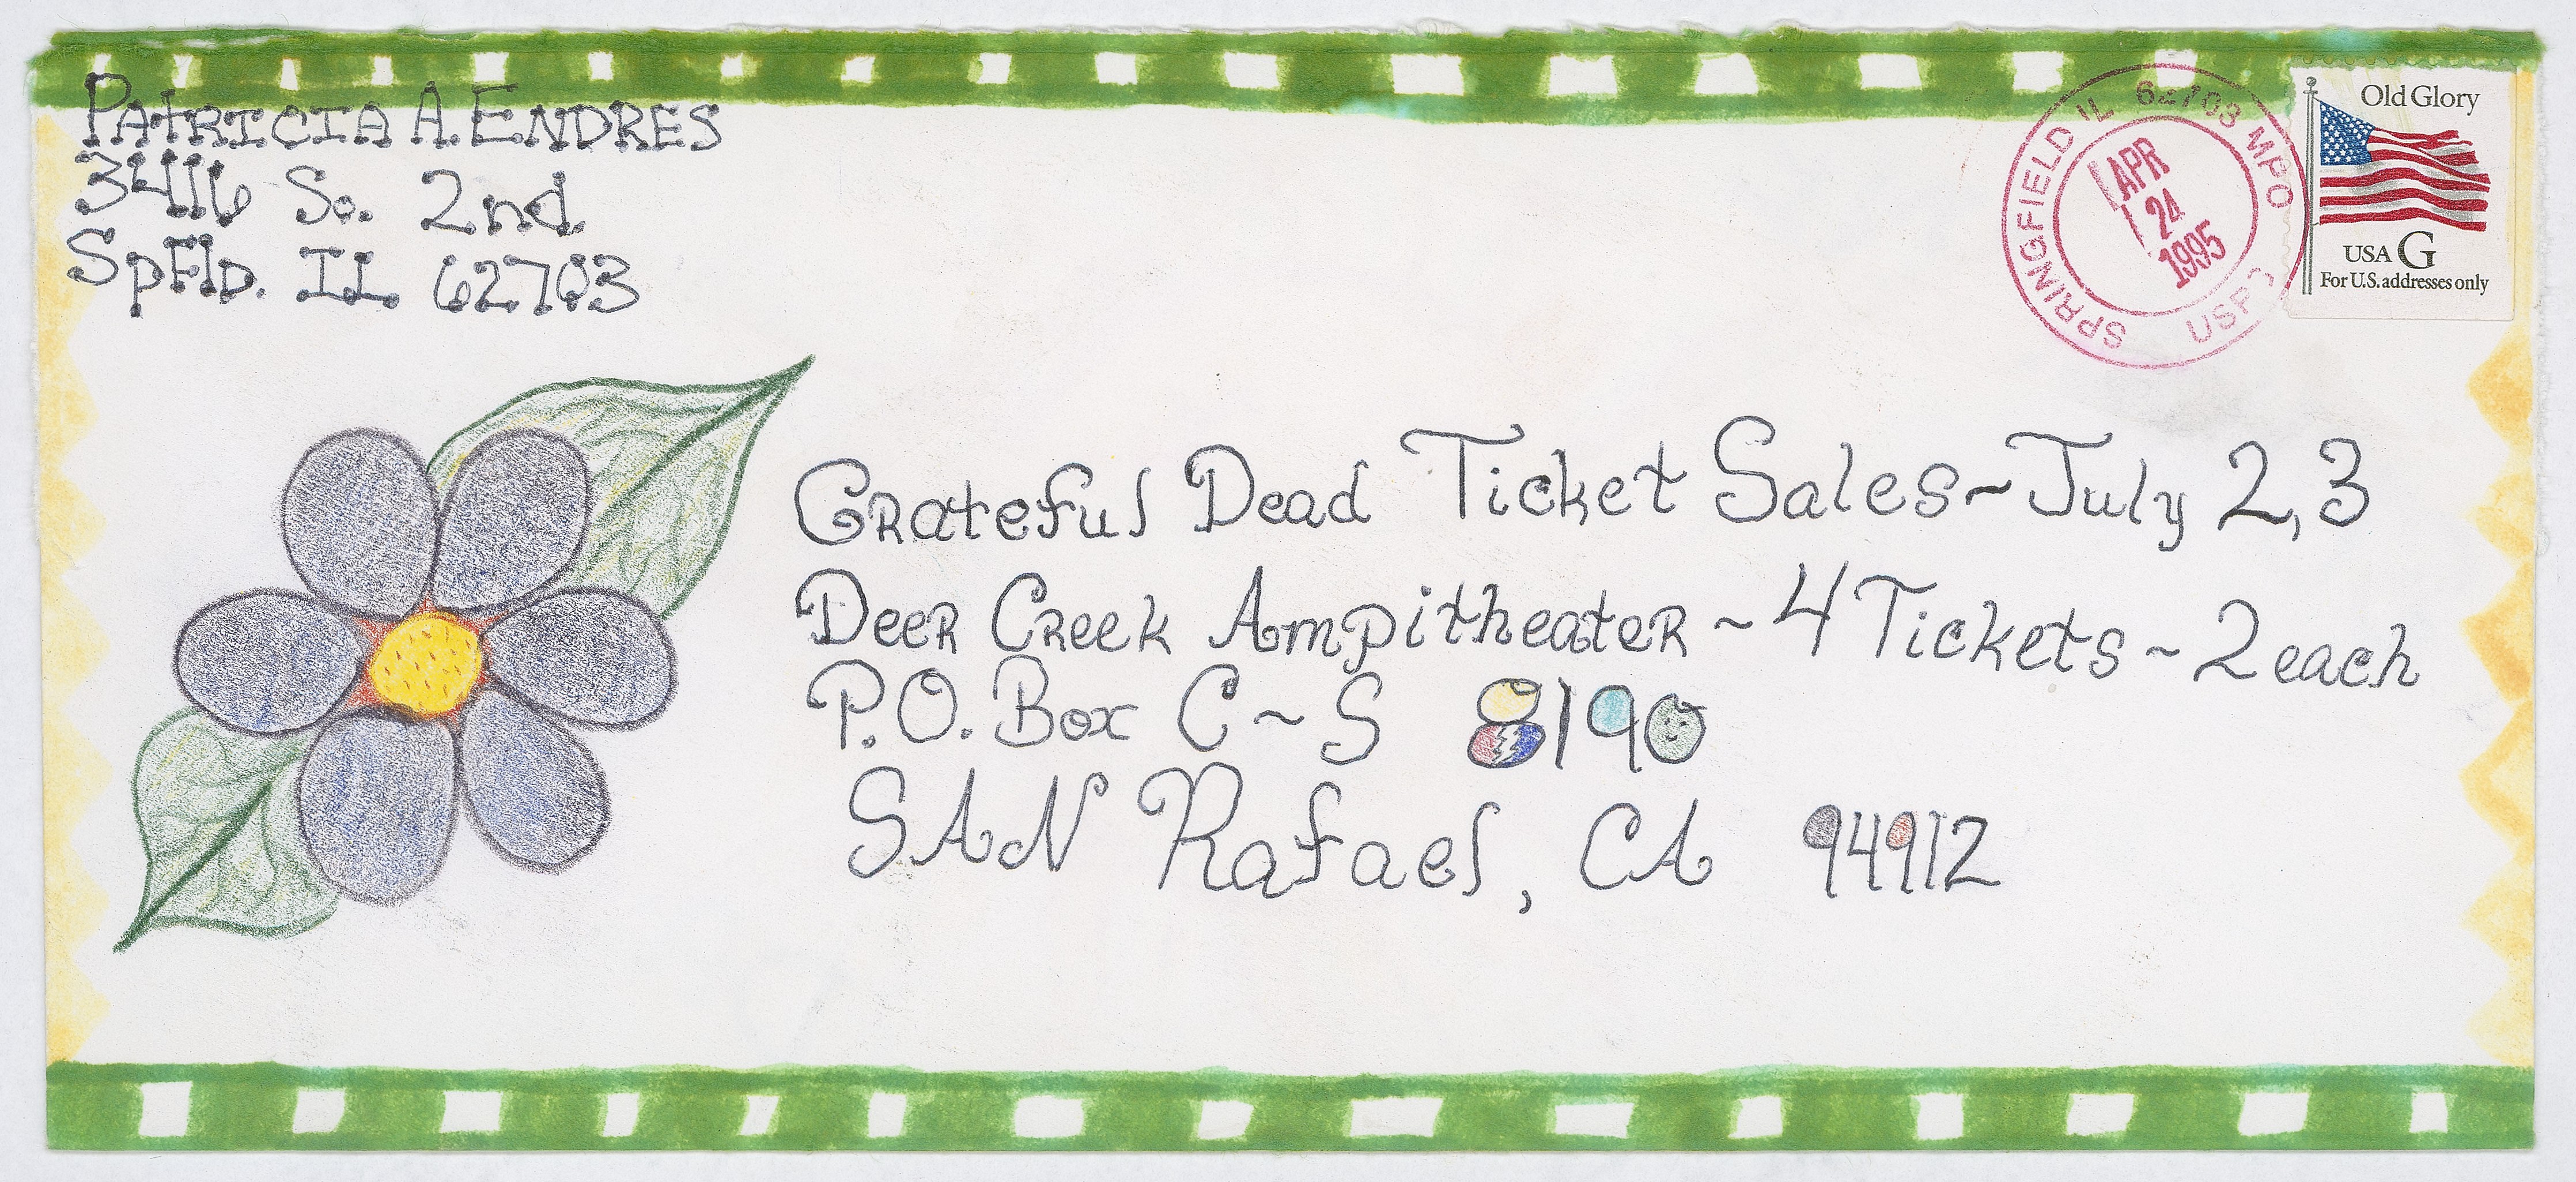 PATRICIA A. ENDRES
3416 So. 2nd.
SpFld. IL 62703
SPRINGFIELD IL 62703 MPO
USPS
APR
24
1995
Old Glory
USA G
For U.S. addresses only
Grateful Dead Ticket Sales~July 2,3
Deer Creek Ampitheater ~ 4 Tickets ~ 2 each
P.O. Box C~S 8190
SAN Rafael, CA 94912